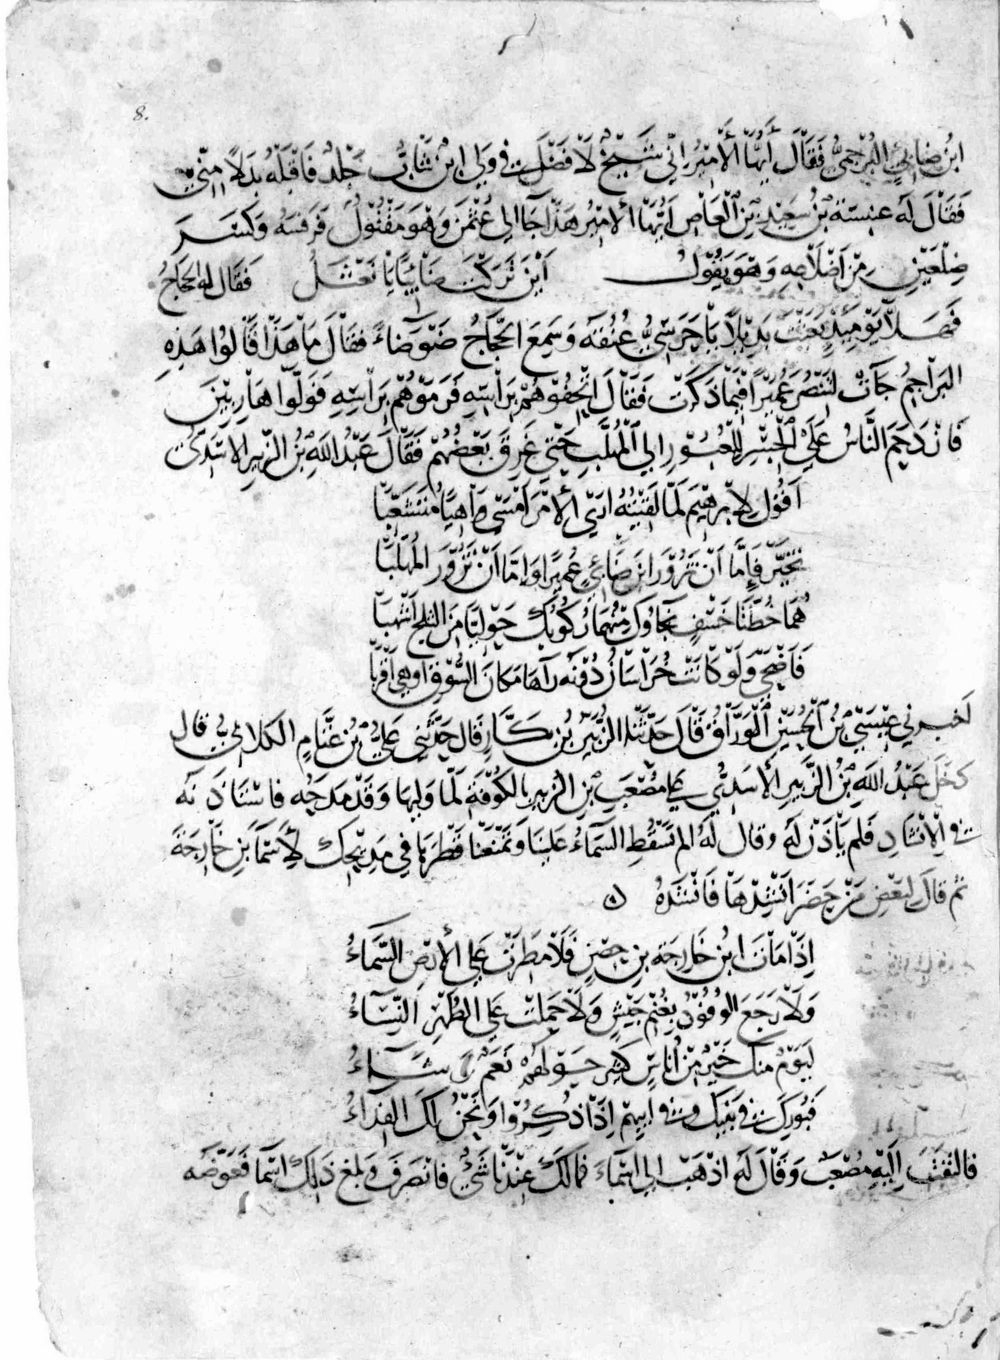 8.
ابنُ ضابئٍ البُرجميُّ فَقَالَ أَيُّهَا الأَمِيرُ إِنّي شَيخٌ لا فَضْلَ فيَّ ولي ابنٌ شابٌّ جَلْدٌ فَاقبَلْهُ بَدَلًا مِنّي
فَقَالَ لَه عنبسَة بنُ سَعِيدِ بنِ العَاصِ أَيُّهَا الأَمِيرُ هَذَا جَا الي عُثْمنَ وَهُوَ مَقْتُولٌ فَرَفَسَه وَكَسَرَ
ضِلْعَيْنِ مِنْ اَضْلَاعِهِ وَهُوَ يَقُولُ أَيْنَ تَرَكْتَ ضَابِيًا يا نَعْثَلُ فَقَالَ له الحَجّاجُ
فَهَلَّا يَوْمَئِذٍ بَعَثْتَ بَدِيلًا يا حَرَسِيُّ اضرب عُنُقَه وَسَمِعَ الحَجَّاجُ ضَوْضَاءً فقَالَ مَا هَذَا قَالُوا هَذِهِ
البَرَاجِمُ جَآتْ لِتَنْصُرَ عُمَيْرًا فِيمَا ذَكَرَتْ فَقَالَ اتْحِفُوهُمْ بِرَاسِهِ فَرَمَوْهُمْ بِرَاسِهِ فَوَلَّوْا هَارِبِينَ
فَازْدَحَمَ النَّاسُ عَلَى الجِسْرِ لِلعُبُورِ الي المُهَلَّبِ حَتّي غَرِقَ بَعْضُهُمْ فَقَالَ عَبْدُ اللهِ بْنُ الزَّبِيرِ الاسَدِيُّ
اَقُوْلُ لِابْرَهِيمَ لَمَّا لَقِيْتُهُ ارَي الأَمْرَ اَمْسَي وَاهِيًا مُتَشَعِّبَا
تَخَيَّرْ فَإِمَّا اَنْ تَزُوْرَ ابْنَ ضَابِئٍ عُمَيْرًا وَإمَّا اَنْ تَزُوْرَ المُهَلَّبَا
هُمَا خُطَّتَا خَسْفٍ نَجَاؤُكَ مِنْهُمَا رُكُوْبُكَ حَوْلِيًّا مِنَ الثَّلْجِ اَشْهَبَا
فَاَضْحَي وَلَوْ كَانَتْ خُرَاسَانُ دُوْنَه رَآهَا مَكَانَ السُّوْقِ اَوْ هِيَ اَقْرَبَا
اَخبرني عِيْسَي بْنُ الحُسَيْنِ الوَرَّاقُ قَالَ حَدَّثَنَا الزُّبَيْرُ بْنُ بَكَّارٍ قَالَ حَدَّثَنِي عَلِيُّ بْنُ غَنَّامِ الكلابيُّ قال
دَخَلَ عَبْدُ اللهِ بْنُ الزَّبِيرِ الأَسَدِيُّ عَلَي مُصْعَبِ بْنِ الزُّبِيرِ بالكُوْفَةِ لَمَّا وَلِيهَا وَقَدْ مَدَحَه فاسْتَاذَنَه
فِي الإِنْشَادِ فَلَمْ يَاْذَنْ لَه وقال لَهُ الم تَسْقُطِ السَّمَآءُ عَلَيْنَا وَتَمْنَعْنَا قَطْرَهَا فِي مَدِيْحِكَ لِأَسْمَآءَ بْنِ خَارِجَةَ
ثم قالَ لِبَعْضِ مَنْ حَضَرَ اَنْشِدْهَا فَاَنْشَدَهُ
إِذَا مَاتَ ابْنُ خَارِجَةَ بنِ حِصْنٍ فَلَا مَطَرَتْ عَلَي الأَرْضِ السَّمَاءُ
وَلَا رَجَعَ الوُفُوْدُ بِغُنْمِ جَيْشٍ وَلَا حَمَلَتْ عَلَي الطُّهْرِ النِّسَاءُ
لَيَوْمٌ مِنْكَ خَيْرٌ مِنْ أُنَاسٍ كَثِيرٍ حَوْلَهُمْ نَعَمٌ وَشَآءُ
فَبُوْرِكَ فِي بَنِيكَ وَفي اَبِيْهِمْ إِذَا ذُكِرُوْا وَنَحْنُ لَكَ الفِدَاءُ
فالتَفَتَ إِلَيْهِ مُصْعَبٌ وَقَالَ لَه اذْهَبْ الي اسْمَاءَ فمالَكَ عِنْدَنَا شَيْءٌ فانْصَرَفَ وَبَلَغَ ذَلِكَ اَسْمَاءَ فَعَوَّضَه